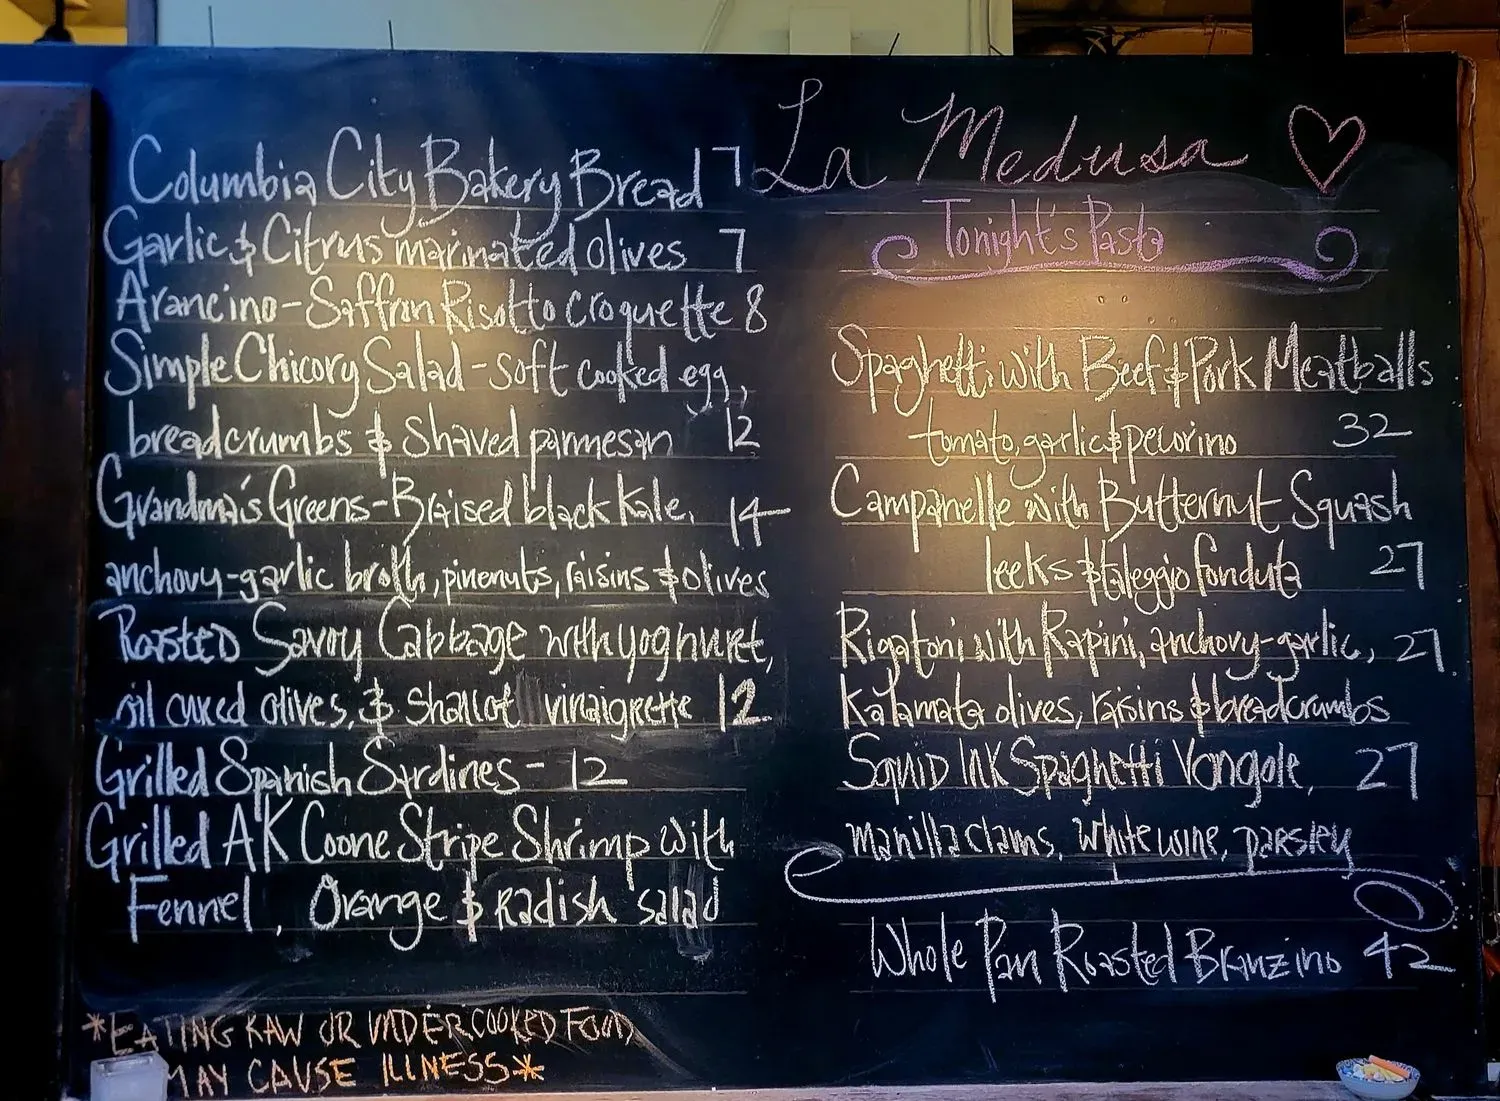 Columbia City Bakery Bread 7
Garlic & Citrus marinated olives 7
Arancino - Saffron Risotto croquette 8
Simple Chicory Salad - soft cooked egg,
breadcrumbs & shaved parmesan 12
Grandma's Greens - Braised black Kale, 14
anchovy-garlic broth, pinenuts, raisins & olives
Roasted Savoy Cabbage with yoghuret,
oil cured olives, & Shallot vinaigrette 12
Grilled Spanish Sardines - 12
Grilled AK Coone Stripe Shrimp with
Fennel, Orange & Radish salad
*EATING RAW OR UNDERCOOKED FOOD
MAY CAUSE ILLNESS*
La Medusa
Tonight's Pasta
Spaghetti with Beef & Pork Meatballs
tomato, garlic & pecorino 32
Campanelle with Butternut Squash
leeks & taleggio fonduta 27
Rigatoni with Rapini, anchovy-garlic, 27
Kalamata olives, raisins & breadcrumbs
Squid Ink Spaghetti Vongole, 27
manilla clams, white wine, parsley
Whole Pan Roasted Branzino 42